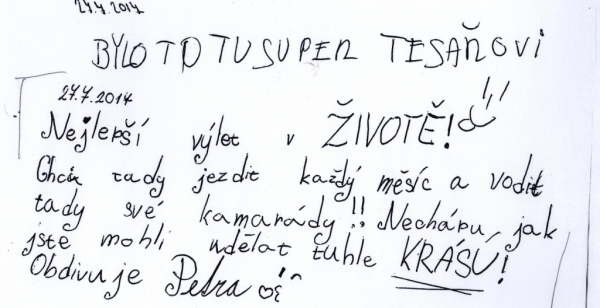 27.7.2014
BYLO TO TU SUPER TESAŇOVI
27.7.2014
Nejlepší výlet v ŽIVOTĚ!
Chci tady jezdit každý měsíc a vodit
tady své kamarády!! Nechápu, jak
jste mohli udělat tuhle KRÁSU!
Obdivuje Petra